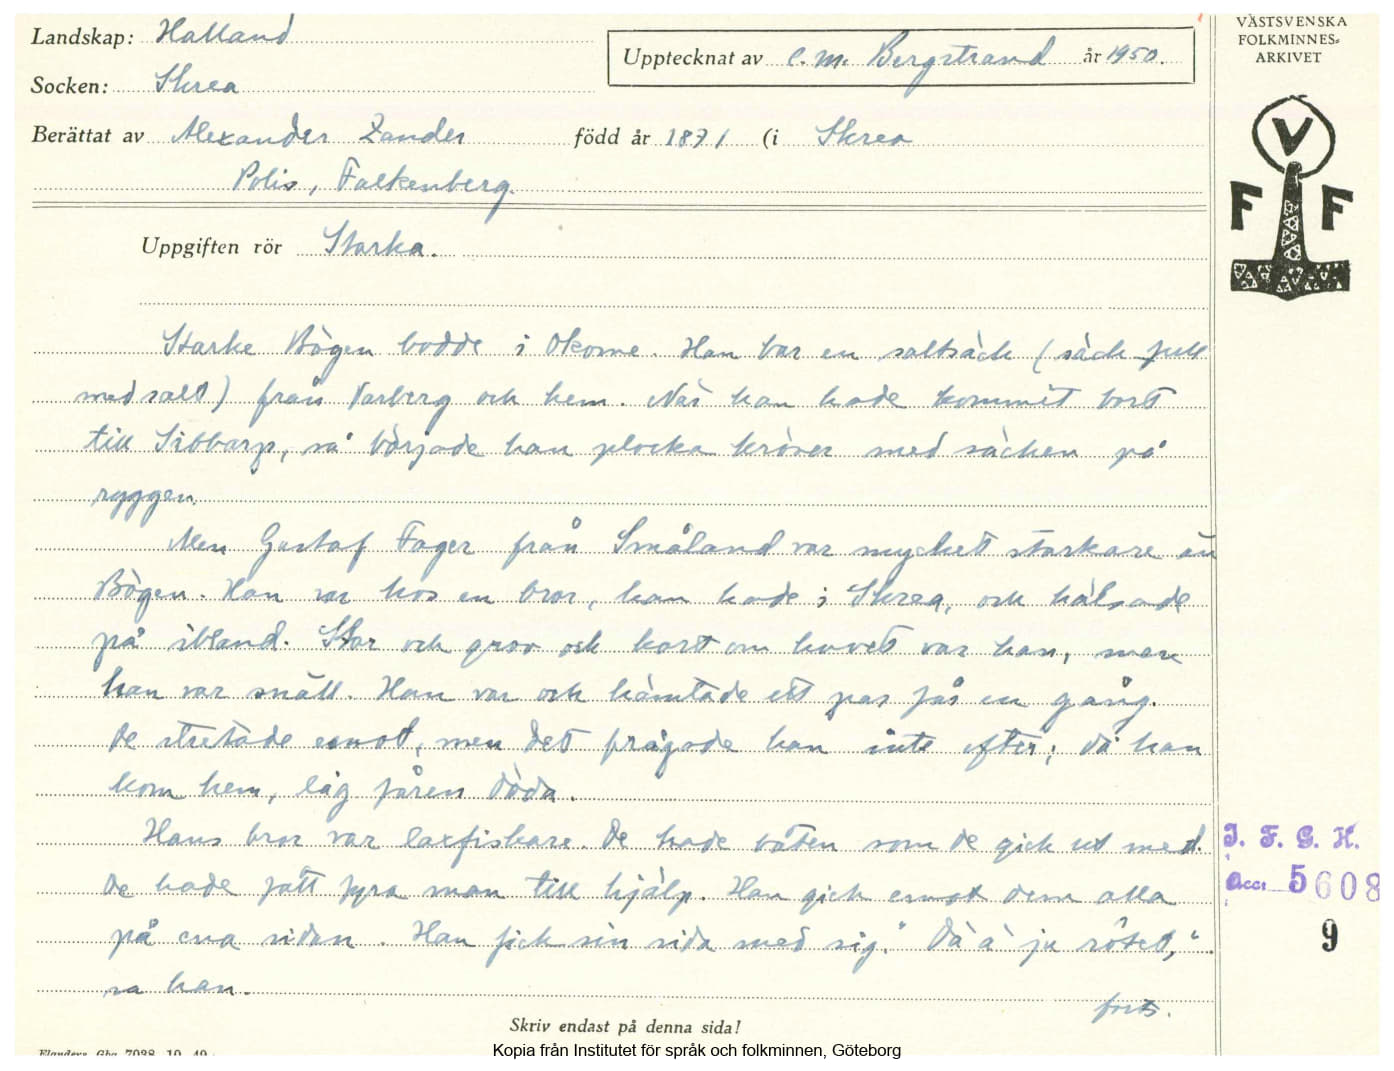 Landskap: Halland
Upptecknat av C. M. Bergstrand år 1950.
VÄSTSVENSKA
FOLKMINNES-
ARKIVET
Socken: Skrea
Berättat av Alexander Zander född år 1871 (i Skrea
Polis, Falkenberg.
V
F F
Uppgiften rör Starka.
Starke Bögen bodde i Okome. Han bar en saltsäck (säck full
med salt) från Varberg och hem. När han hade kommit bort
till Sibbarp, så började han plocka kröser med säcken på
ryggen.
Men Gustaf Fager från Småland var mycket starkare än
Bögen. Han var hos en bror, han hade i Skrea, och hälsade
på ibland. Stor och grov och kort om huvet var han, men
han var snäll. Han var och hämtade ett par får en gång.
De stretade emot, men det frågade han inte efter; då han
kom hem, låg fåren döda.
Hans bror var laxfiskare. De hade båten som de gick ut med.
De hade fått fyra man till hjälp. Han gick emot dem alla
på ena sidan. Han fick sin sida med sig. "Dä ä ju rötet,"
sa han.
forts.
I. F. G. H.
Acc: 5608
9
Skriv endast på denna sida!
Flanders Gbg 7038 10. 49.
Kopia från Institutet för språk och folkminnen, Göteborg